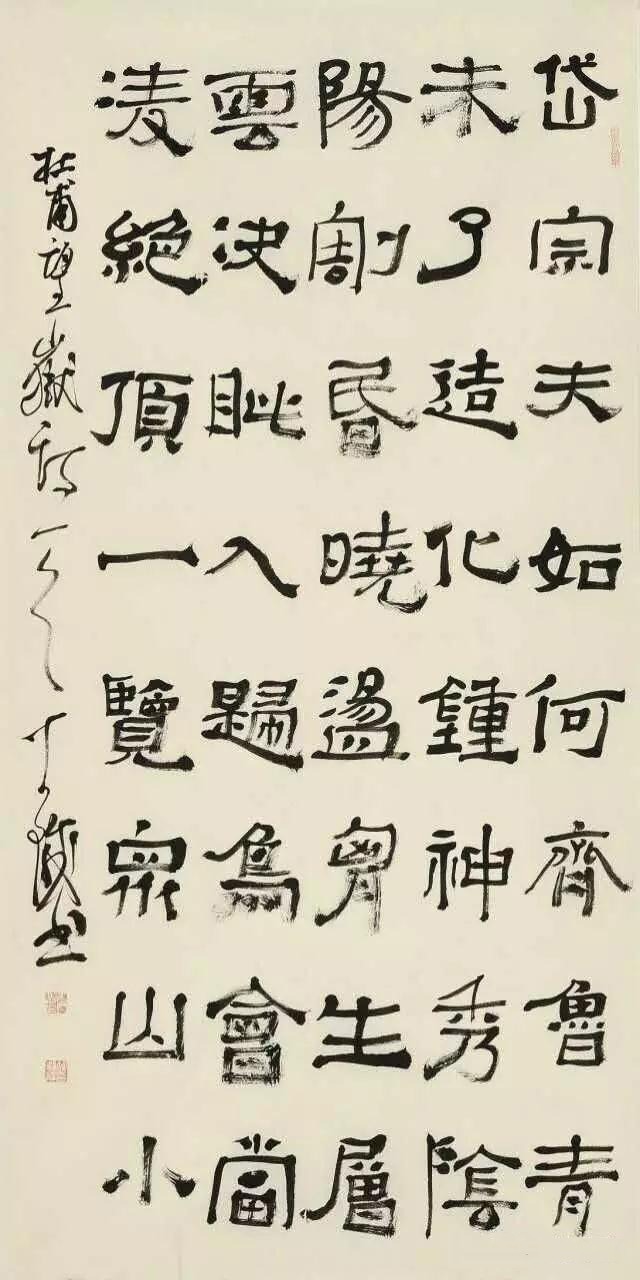 岱宗夫如何齊魯青
未了造化鍾神秀陰
陽割昏曉盪胷生層
雲決眥入歸鳥會當
淩絕頂一覽衆山小
杜甫望嶽詩一首
書